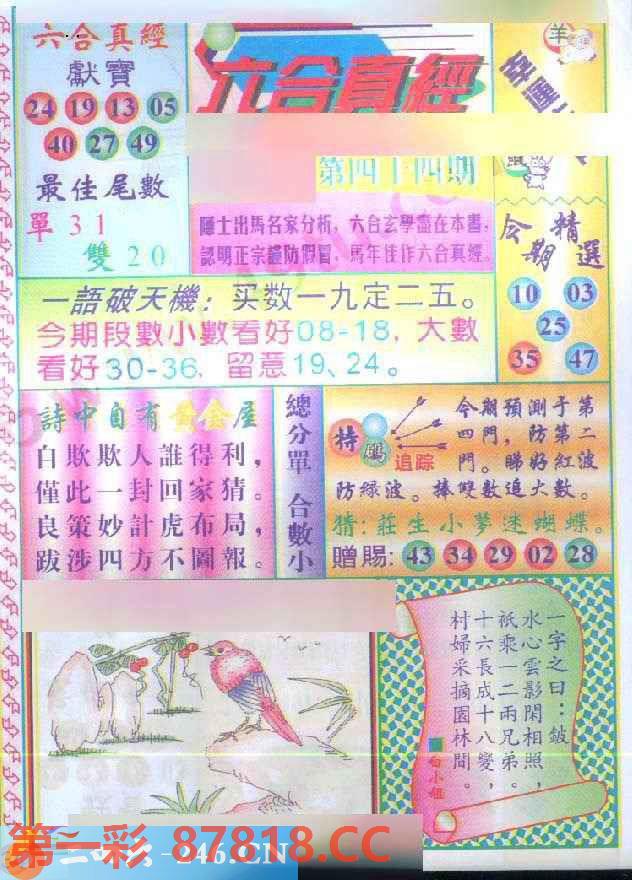 六合真經
獻寶
24 19 13 05
40 27 49
最佳尾數
單 31
雙 20
六合真經
第四十四期
隱士出馬名家分析，六合玄學盡在本書，
認明正宗謹防假冒，馬年佳作六合真經。
羊
今期精選
10 03
25
35 47
一語破天機：买数一九定二五。
今期段數小數看好08-18，大數
看好30-36，留意19、24。
詩中自有黃金屋
自欺欺人誰得利，
僅此一封回家猜。
良策妙計虎布局，
跋涉四方不圖報。
總分單 合數小
特碼
追踪
今期預測于第
四門，防第二
門。睇好紅波
防綠波。捧雙數追大數。
猜：莊生小夢迷蝴蝶。
贈賜：43 34 29 02 28
一字之曰：皺
水心雲影閑相照，
祇乘一二兩兄弟。
十六長成十八變，
村婦采摘園林間。
白小姐
第一彩 87818.CC
-246.CN